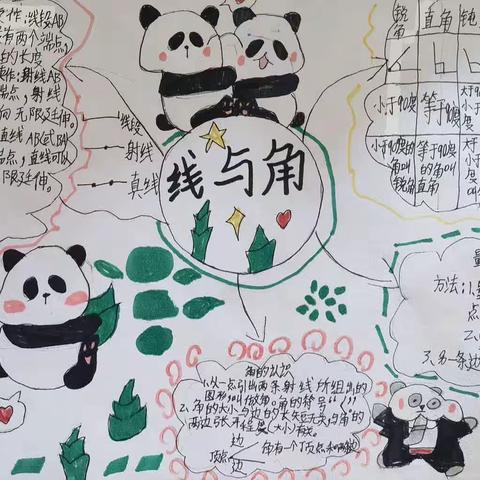 作:线段AB
有两个端点,
的长度
作:射线AB
端点,射线
向无限延伸。
直线AB(或BA)
端点,直线可以
限延伸。
线段
射线
真线
线与角
锐角
直角
钝
小于90度
等于90度
大于90
小于90度的角叫锐角
等于90度的角叫直角
大于
小于
度
角叫
量
方法:1.
点
2.
3.另一条边
角的认识
1.从一点引出两条射线所组成的
图形叫做角。角的符号“∠”
2.角的大小与边的长短无关,与角的
两边张开程度(大小)有关。
边
顶点
边
角有一个顶点和两条边